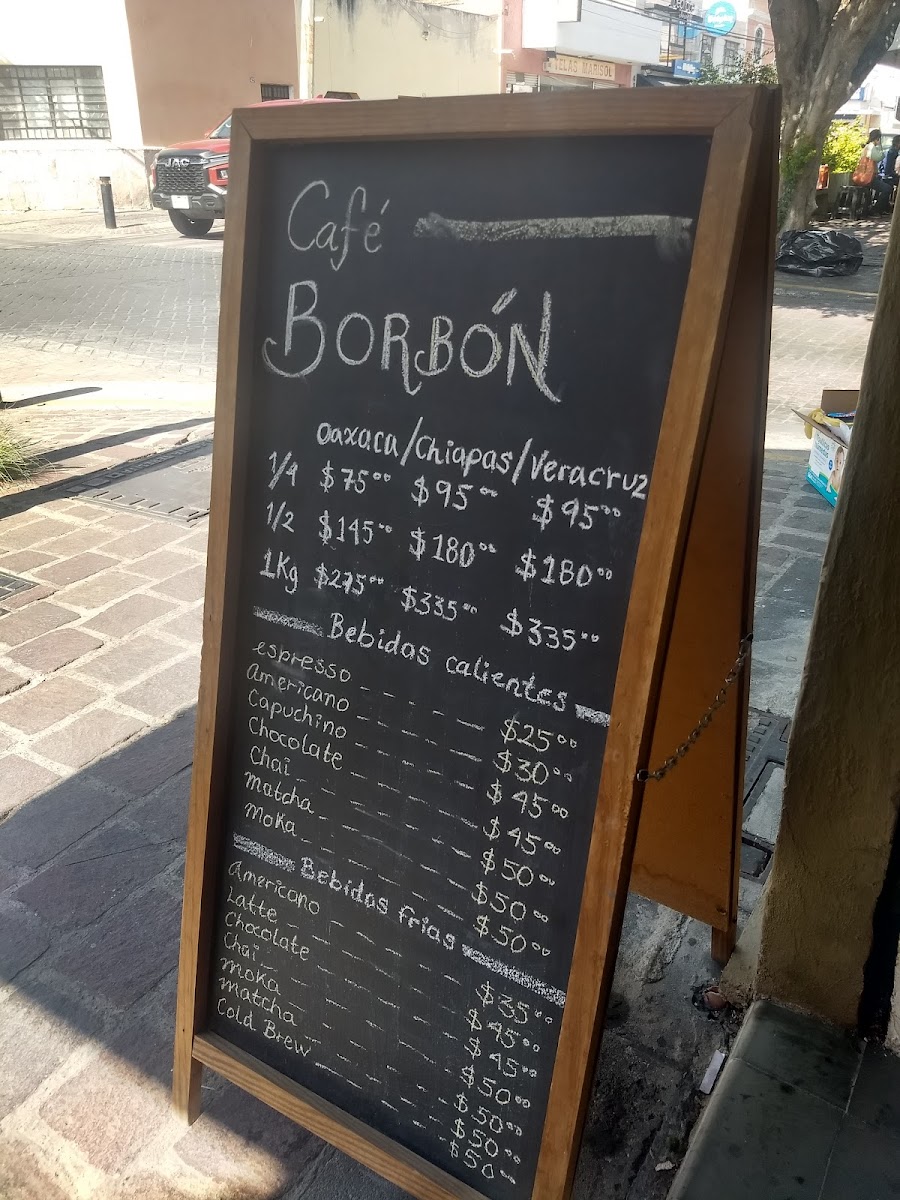 JAC
TELAS MARISOL
Café
BORBÓN
Oaxaca/Chiapas/Veracruz
1/4 $75⁰⁰ $95⁰⁰ $95⁰⁰
1/2 $145⁰⁰ $180⁰⁰ $180⁰⁰
1Kg $275⁰⁰ $335⁰⁰ $335⁰⁰
Bebidas calientes
espresso $25⁰⁰
Americano $30⁰⁰
Capuchino $45⁰⁰
Chocolate $45⁰⁰
Chai $50⁰⁰
Matcha $50⁰⁰
Moka $50⁰⁰
Bebidas frias
Americano $35⁰⁰
Latte $45⁰⁰
Chocolate $45⁰⁰
Chai $50⁰⁰
Moka $50⁰⁰
Matcha $50⁰⁰
Cold Brew $50⁰⁰